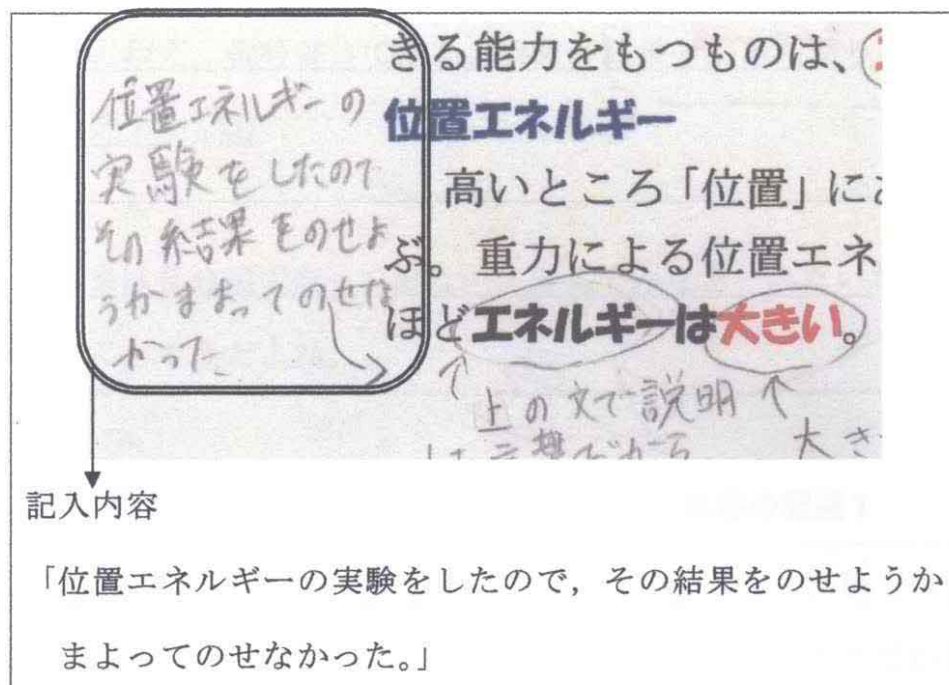 きる能力をもつものは、
位置エネルギーの
実験をしたので
その結果をのせよ
うかままってのせな
かった
位置エネルギー
高いところ「位置」に
ぶ。重力による位置エネ
ほどエネルギーは大きい。
上の文で説明
大き
記入内容
「位置エネルギーの実験をしたので，その結果をのせようか
まよってのせなかった。」